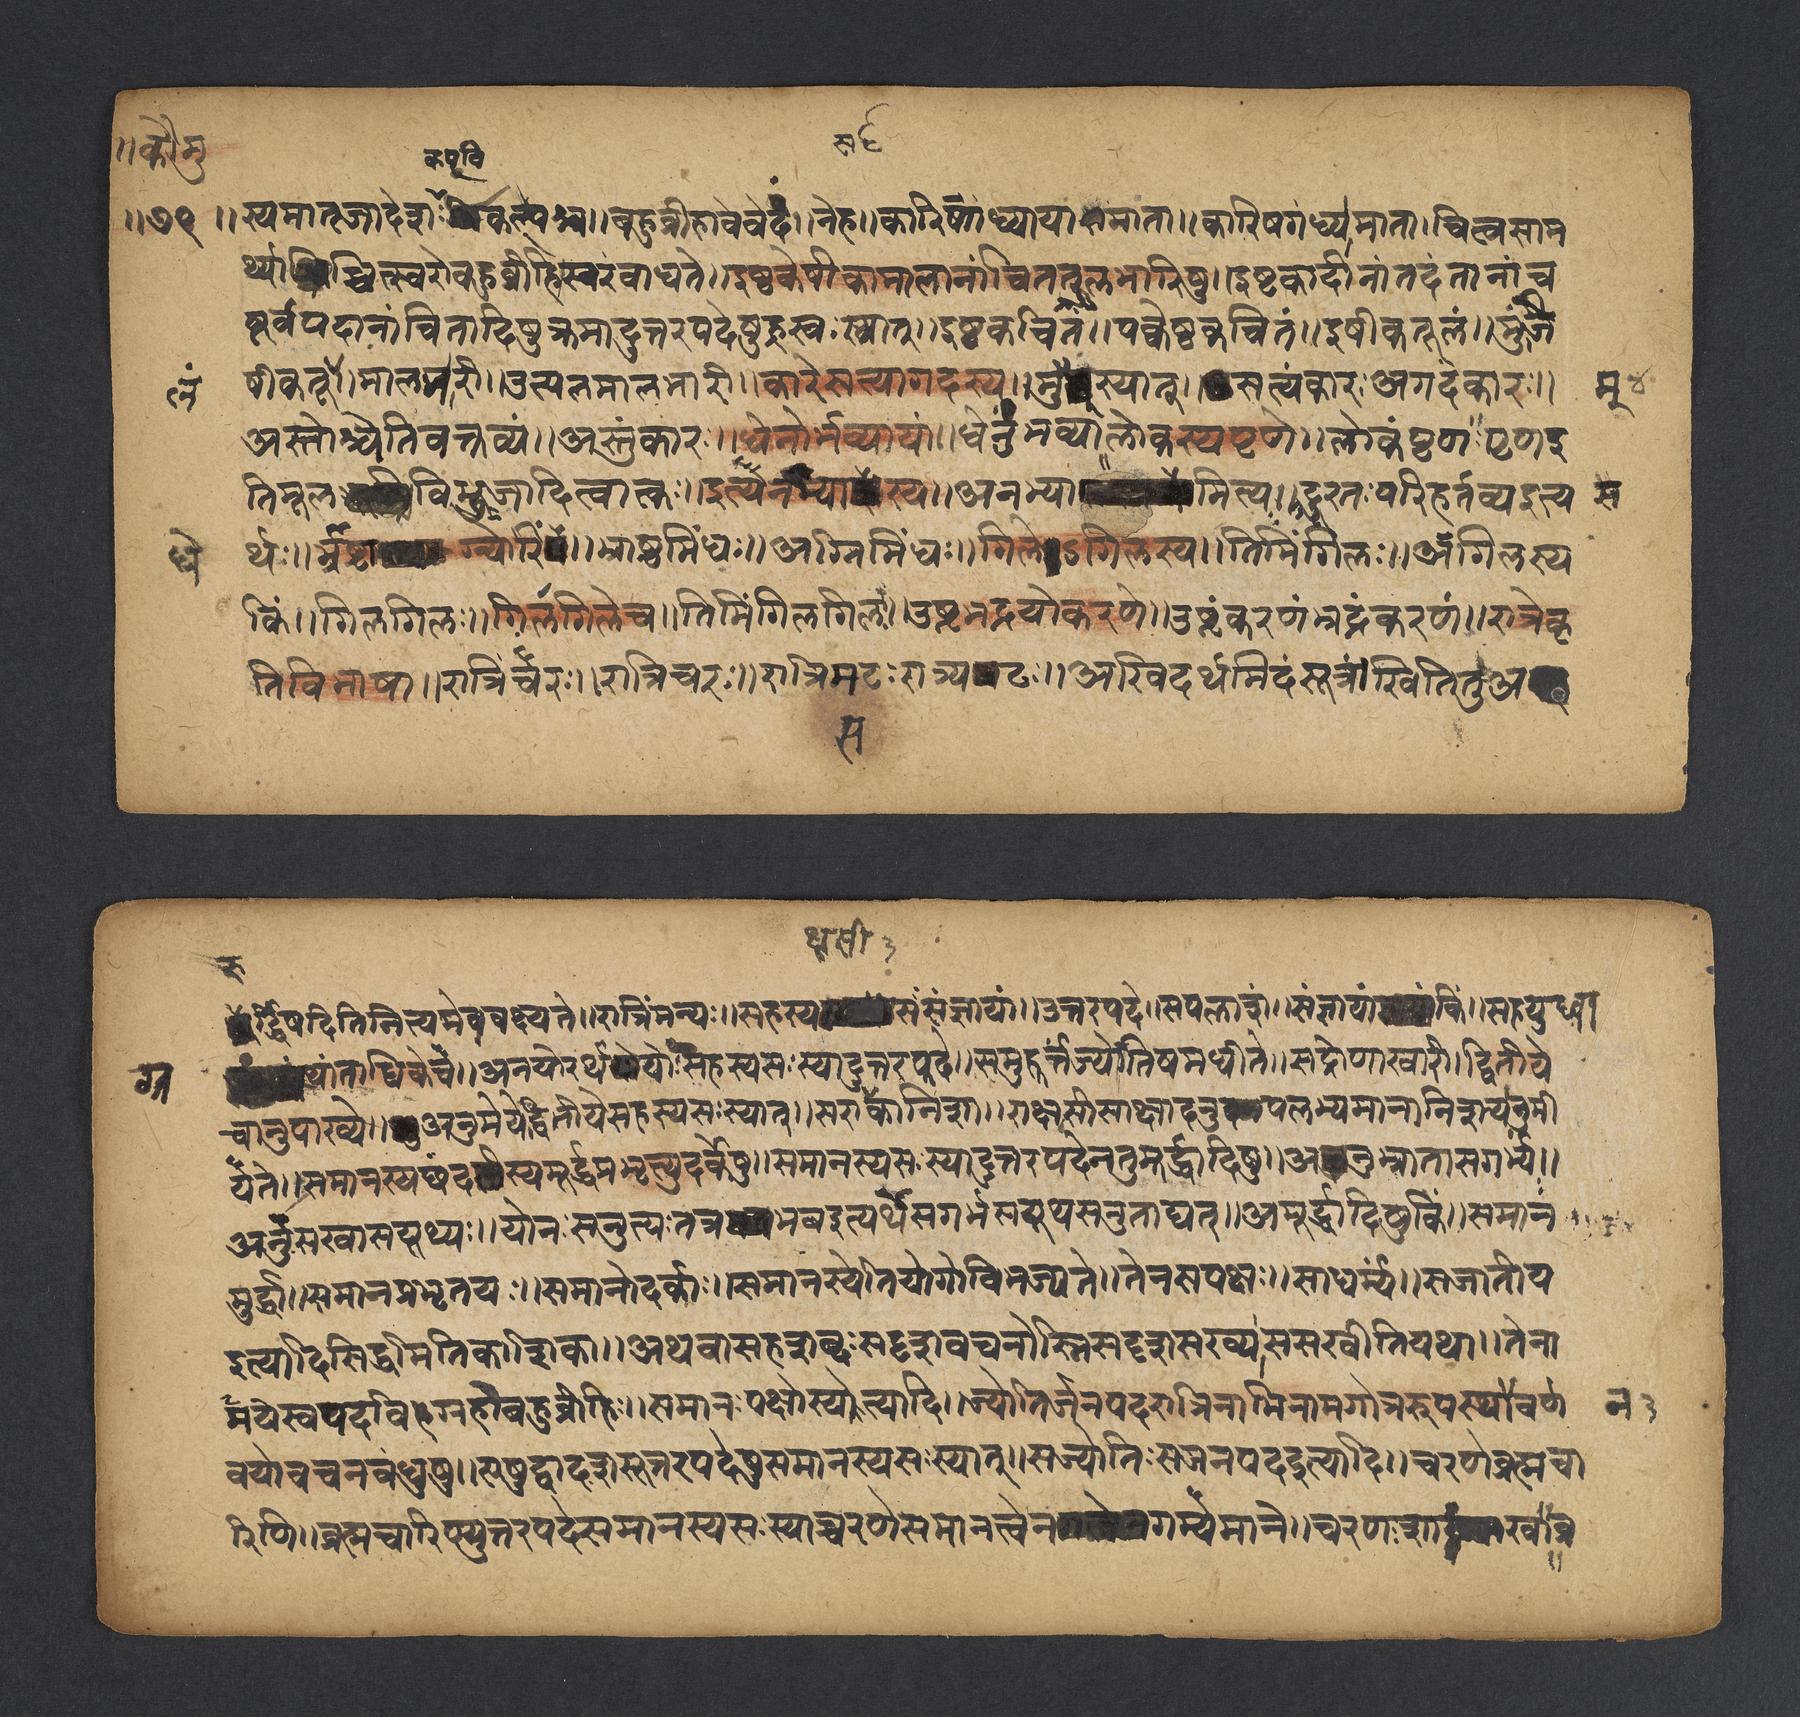 ॥कौमु
कपूवि
॥७९॥स्यमातृजादेशःविकल्पश्च॥बहुव्रीहावेवेदं॥नेह॥कारिषगंध्यायामाता॥कारिषगंध्यमाता॥चित्वसाम
र्थ्याच्चित्स्वरोबहुव्रीहिस्वरंबाधते॥इष्टकेषीकामालानांचिततूलभारिषु॥इष्टकादीनांतदंतानांच
पूर्वपदानांचितादिषुक्रमादुत्तरपदेषुह्रस्वःस्यात्॥इष्टकचितं॥पक्वेष्टकचितं॥इषीकतूलं॥मुंजे
षीकतू॥मालभारी॥उत्पलमालभारी॥कारेसत्यागदस्य॥मुंस्यात्॥सत्यंकारःअगदंकारः॥
लं
मू
अस्तोश्चेतिवक्तव्यं॥अस्तुंकारः॥धेनोर्भव्यायां॥धेनुंभव्यालोकस्यपृणे॥लोकंपृणःपृणइ
तिमूलविभुजादित्वात्कः॥इत्येनभ्याशस्य॥अनभ्यामित्य॥दूरतःपरिहर्तव्यइत्य
स
र्थः॥भ्राष्ट्राग्न्योरिंधे॥भ्राष्ट्रमिंधः॥अग्निमिंधः॥गिलेऽगिलस्य॥तिमिंगिलः॥अगिलस्य
धे
किं॥गिलगिलः॥गिलगिलेच॥तिमिंगिलगिलः॥उष्णभद्रयोःकरणे॥उष्णंकरणंभद्रंकरणं॥रात्रेःकृ
तिविभाषा॥रात्रिंचरः॥रात्रिचरः॥रात्रिमटःरात्र्यटः॥अखिदर्थमिदंसूत्रं॥खितितुअ
स
रु
र्द्विषदितिनित्यमेववक्ष्यते॥रात्रिंमन्यः॥सहस्यसःसंज्ञायां॥उत्तरपदे॥सपलाशं॥संज्ञायांकिं॥सहयुध्वा
ग्रं
थांताधिकेच॥अनयोरर्थयोःसहस्यसःस्यादुत्तरपदे॥समुहूर्त्तंज्योतिषमधीते॥सद्रोणाखारी॥द्वितीये
चानुपाख्ये॥अनुमेयेद्वितीयेसहस्यसःस्यात्॥सराक्षसीकानिशा॥राक्षसीसाक्षादनुपलभ्यमानानिशयानुमी
यते॥समानस्यछंदस्यमूर्द्धप्रभृत्युदर्केषु॥समानस्यसःस्यादुत्तरपदेनतुमूर्द्धादिषु॥अनुभ्रातासगर्भ्यः॥
अनुसखासयूथ्यः॥योनःसनुत्यःतत्रभवइत्यर्थेसगर्भसयूथसनुताद्यत्॥अमूर्द्धादिषुकिं॥समान
मूर्द्धा॥समानप्रभृतयः॥समानोदर्काः॥समानस्येतियोगोविभज्यते॥तेनसपक्षः॥साधर्म्यं॥सजातीय
इत्यादिसिद्धमितिकाशिका॥अथवासहशब्दःसदृशवचनोस्तिसदृशःसख्यासससखीतियथा॥तेना
यमस्वपदविग्रहोबहुव्रीहिः॥समानःपक्षोस्येत्यादि॥ज्योतिर्जनपदरात्रिनाभिनामगोत्ररूपस्थानवर्ण
वयोवचनबंधुषु॥एषुद्वादशसूत्तरपदेषुसमानस्यसःस्यात्॥सज्योतिःसजनपदइत्यादि॥चरणेब्रह्मचा
रिणि॥ब्रह्मचारिण्युत्तरपदेसमानस्यसःस्याच्चरणेसमानत्वेनगम्यमाने॥चरणःशाखा